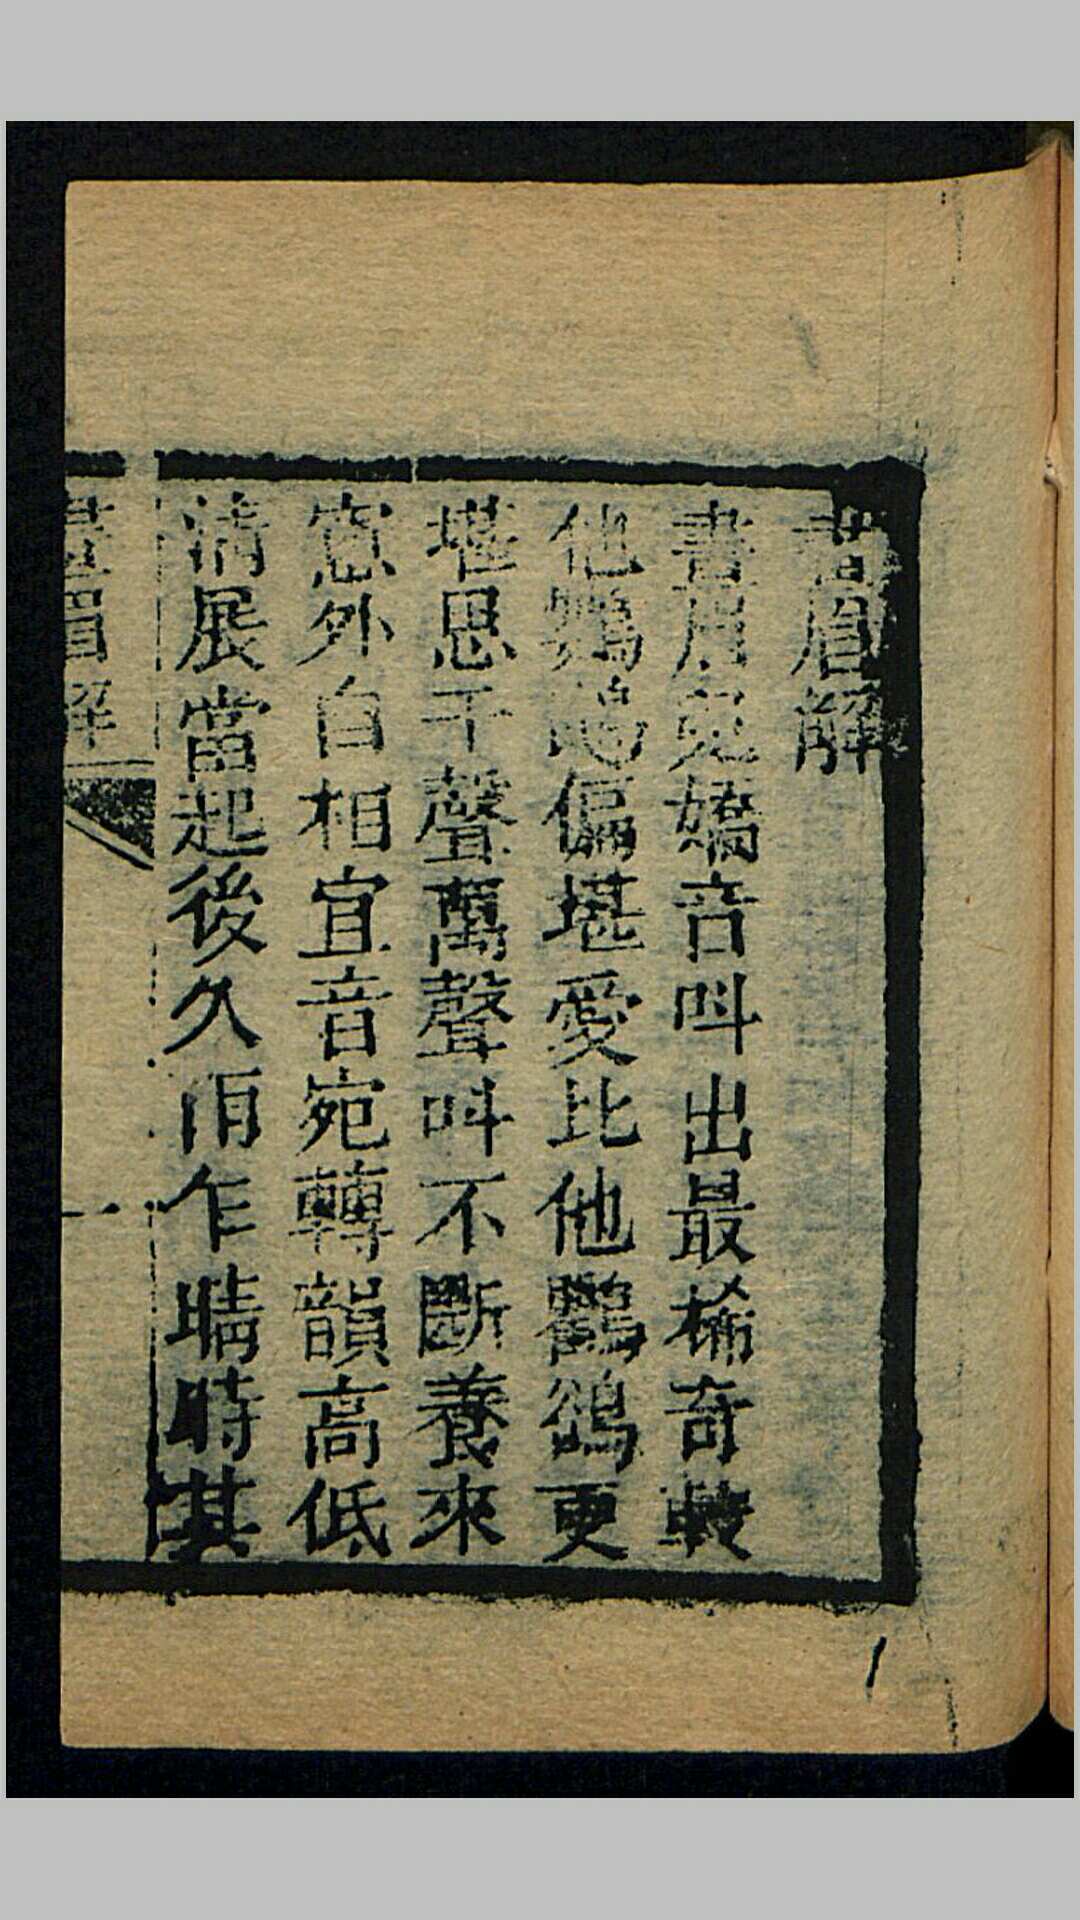 畫眉解
畫眉兒嬌音呌出最稀奇較
他鸚鵡偏堪愛比他鸛鵒更
堪思千聲萬聲呌不斷養來
窓外自相宜音宛轉韻高低
清展當起後久雨乍晴時其
畫眉解
一
1